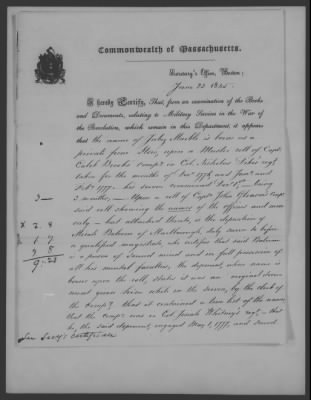 Commonwealth of Massachusetts.
Secretary's Office, Boston;
June 23 1845
I hereby Certify, That, from an examination of the Books
and Documents, relating to Military Service in the War of
the Revolution, which remain in this Department, it appears
that the name of Marble is borne as a
private from Stow, upon a Muster roll of Capt
Caleb Brooks' Comp'y in Col. Nicholas Dike's reg't,
taken for the months of Dec 1776 and Jan'y and
Feb'y 1777. his service commenced
3 months, — Upon a roll of Capt John Gleason's Comp'y
3 —
said roll showing the names of the officers and men
only — that attached thereto, is the deposition of
x 2 8
of Marlborough, duly sworn to before
1 7
a qualified magistrate, who certifies that said
is a person of sound mind and in full possession of
2 8
all his mental faculties, the deponent, whose name is
9-23
borne upon the roll, states it was an original
made by the clerk of
the Comp'y; that it contained a true list of the names,
that the Comp'y was in Col. Josiah Whitney's reg't — that
he, the said deponent, engaged May 1, 1777, and served
See Sec'y's certificate